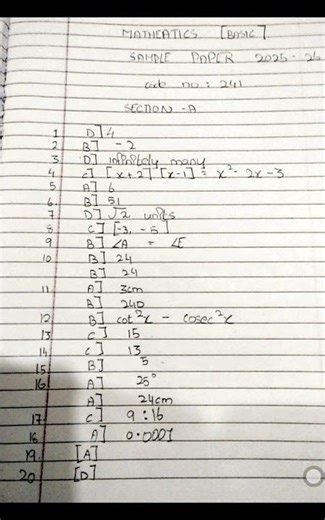 MATHEATICS [BASIC]
SAMPLE PAPER 2025-26
code no : 241
SECTION -A
1 D] 4
2 B] -2
3 D] infinitely many
4 C] [x+2] [x-1] = x² - 2x - 3
5 A] 6
6. B] 51
7 D] √2 units
8 C] [-3, -5]
9 B] ∠A = ∠E
10 B] 24
B] 24
11 A] 3cm
B] 240
12 B] cot²x - cosec²x
13 C] 15
14 C] 13
15 B] 5
16 A] 25°
A] 24cm
17. C] 9:16
18 A] 0.0001
19. [A]
20 [D]